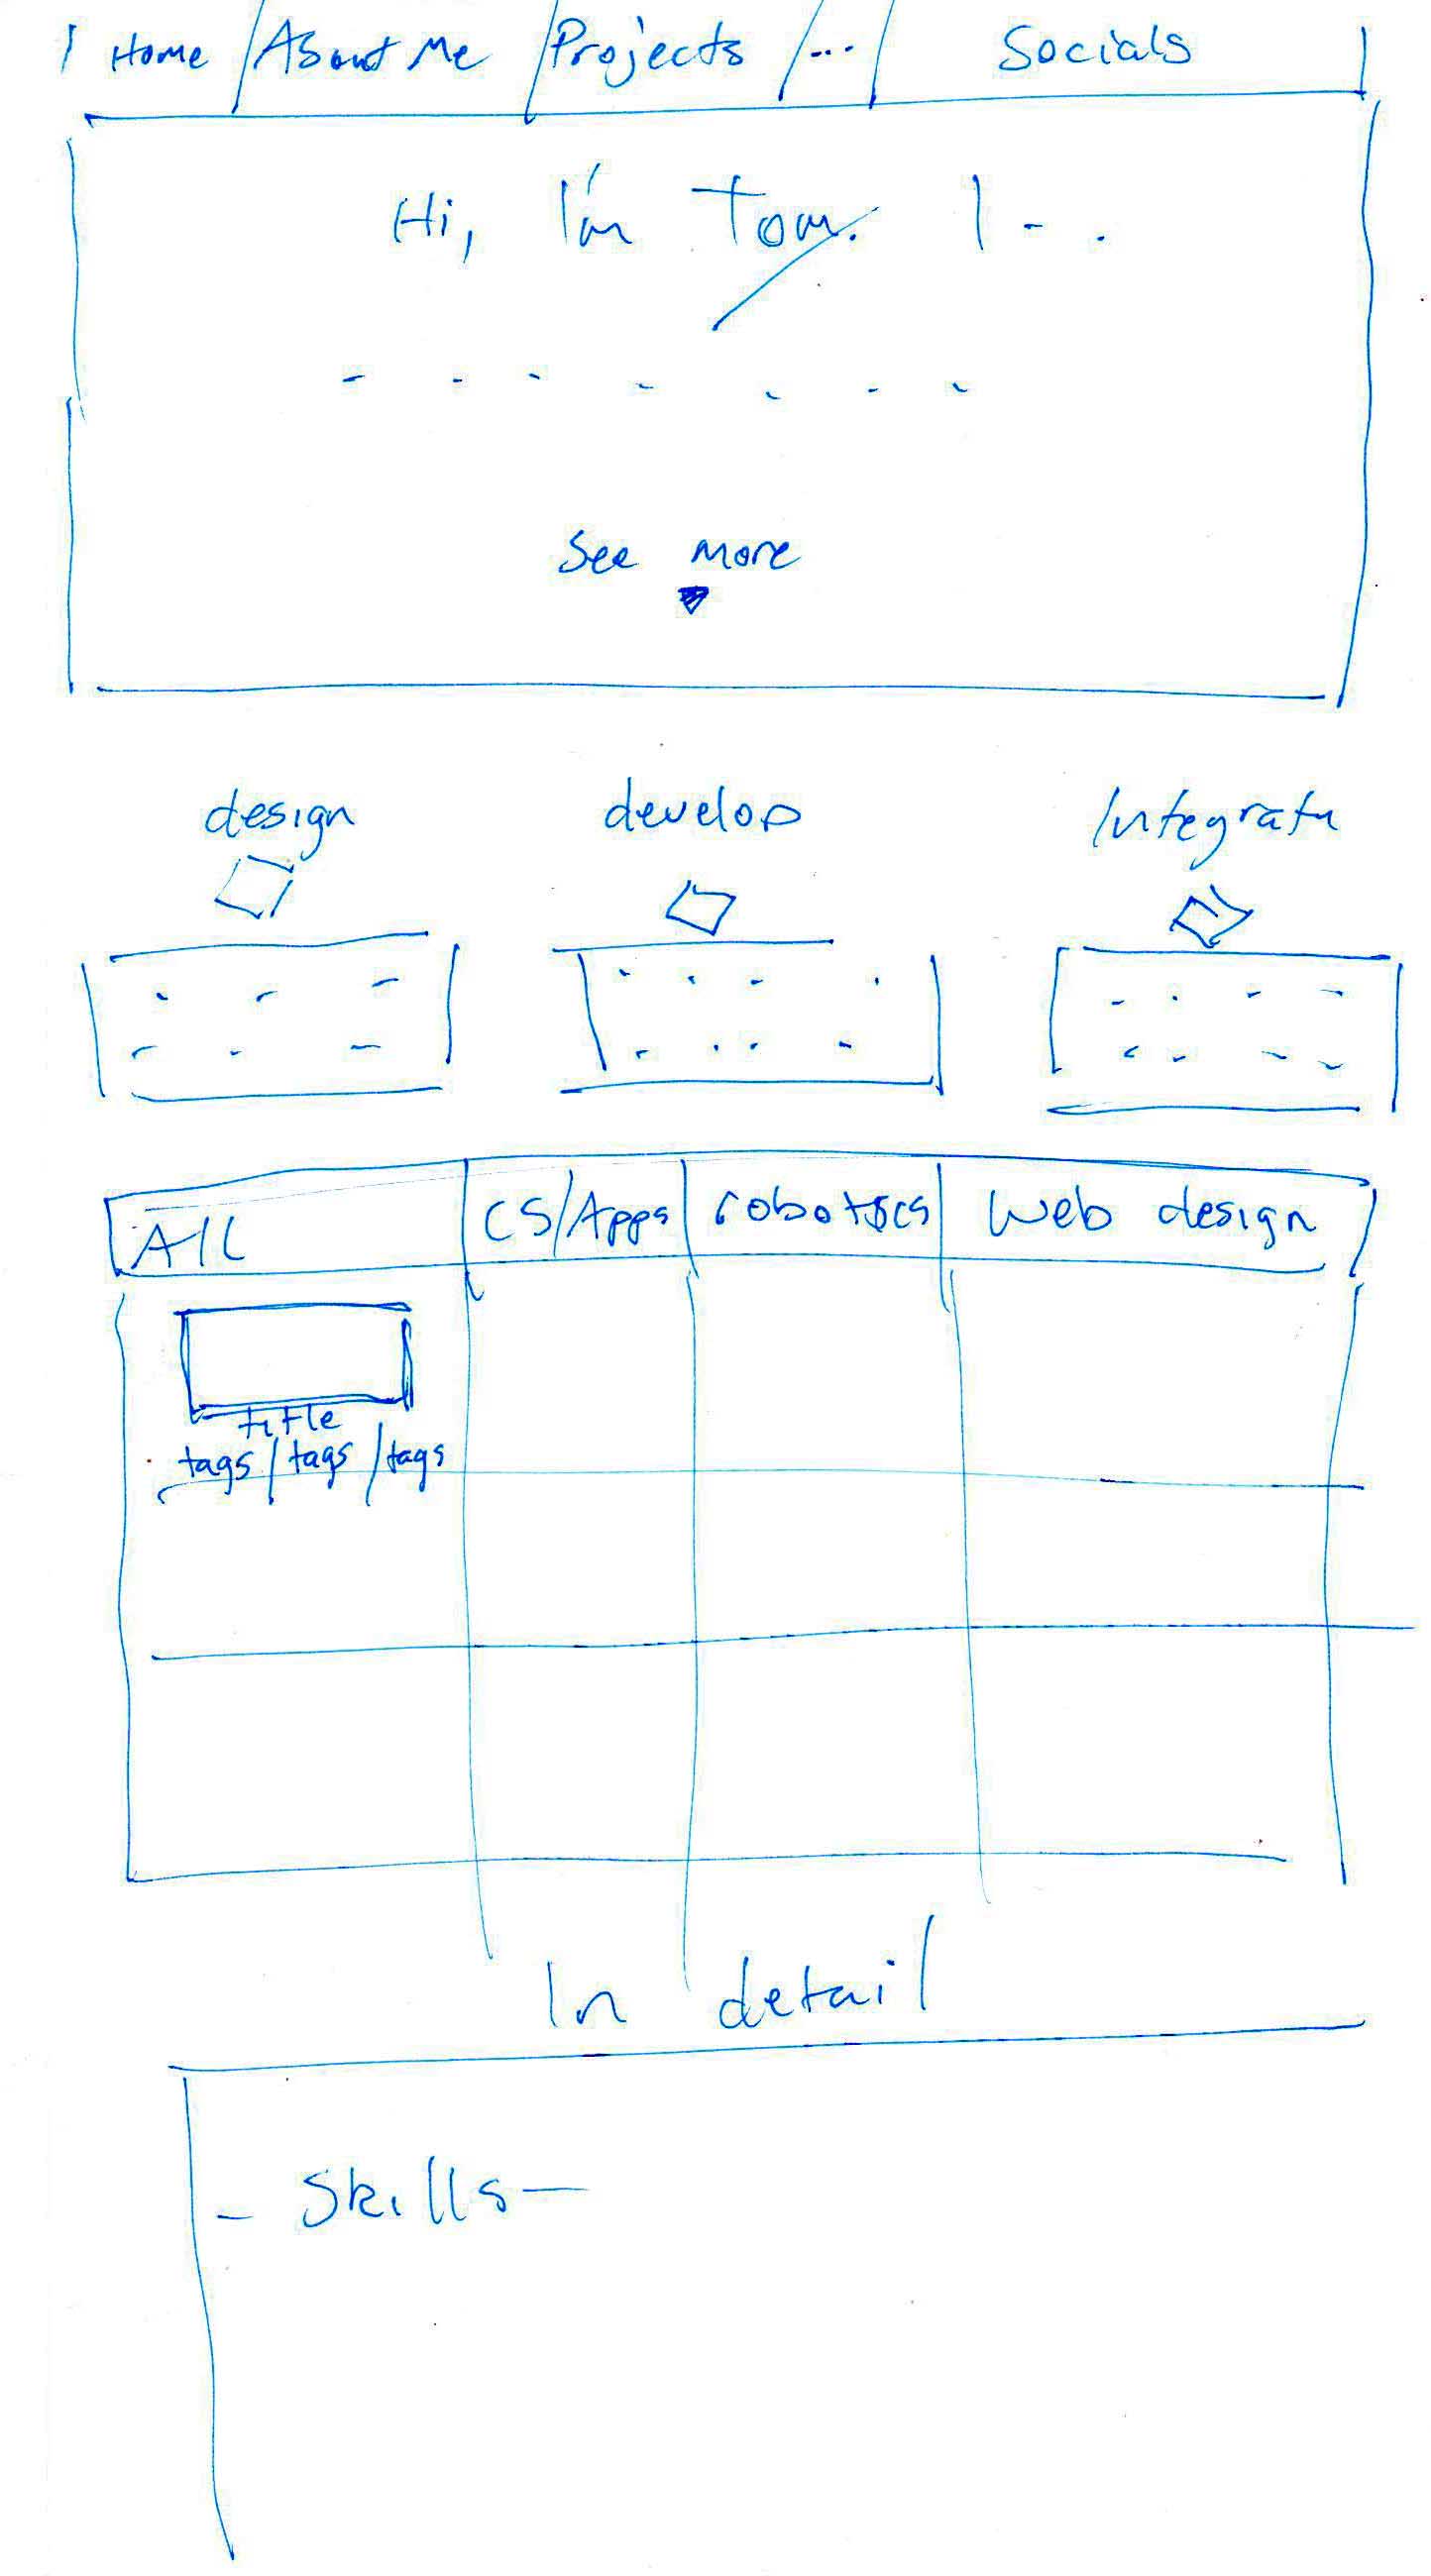 Home / About Me / Projects / ... / Socials
Hi, I'm Tom. I - .
See more
design develop Integrate
All CS/Apps robotics Web design
title
tags / tags / tags
In detail
- Skills -